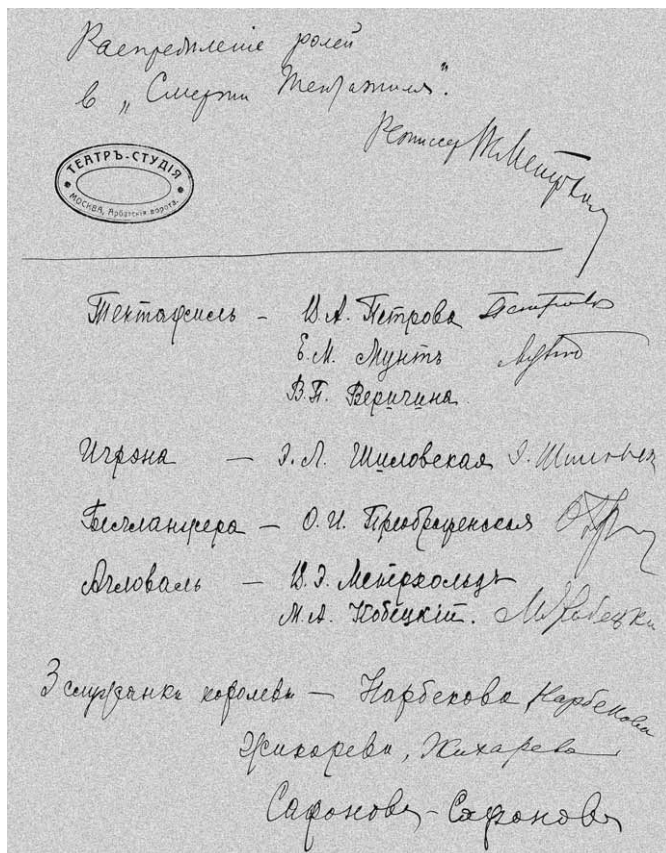 Распредѣленіе ролей
в „Смерти Тентажиля".
Режиссер
ТЕАТРЪ-СТУДІЯ
МОСКВА, Арбатскія ворота.
Тентажиль - В.А. Петрова Петрова
Е.М. Мунтъ Мунтъ
В.П. Веригина
Игрэна - Э.Л. Шиловская Э. Шиловская
Белланжера - О.И. Преображенская
Агловаль - В.Э. Мейерхольдъ
М.А. Нобецкій.
3 служанки королевы - Нарбекова Нарбекова
Жихарева, Жихарева
Сафонова - Сафонова